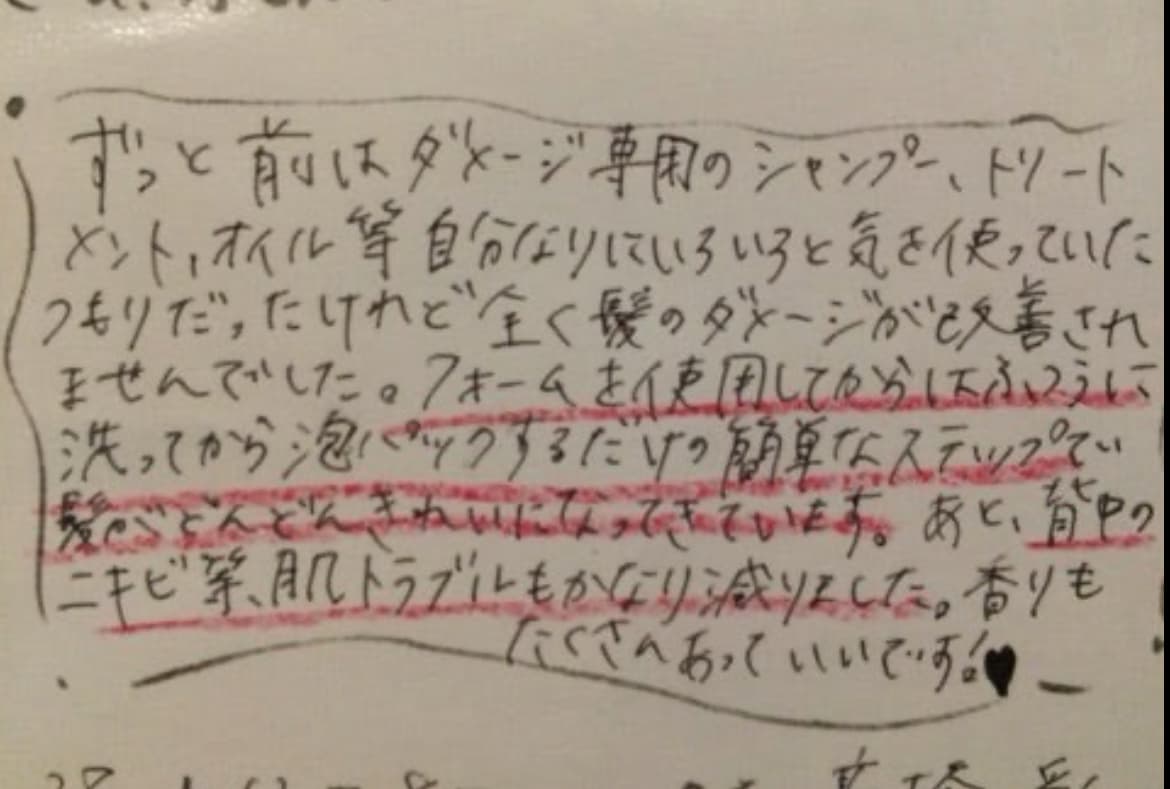 ずっと前はダメージ専用のシャンプー、トリート
メント,オイル等自分なりにいろいろと気を使っていた
つもりだったけれど全く髪のダメージが改善され
ませんでした。フォームを使用してからはふつうに
洗ってから泡パックするだけの簡単なステップでい
髪がどんどんきれいになってきています。あと、背中の
ニキビ等、肌トラブルもかなり減りました。香りも
たくさんあっていいです!♥